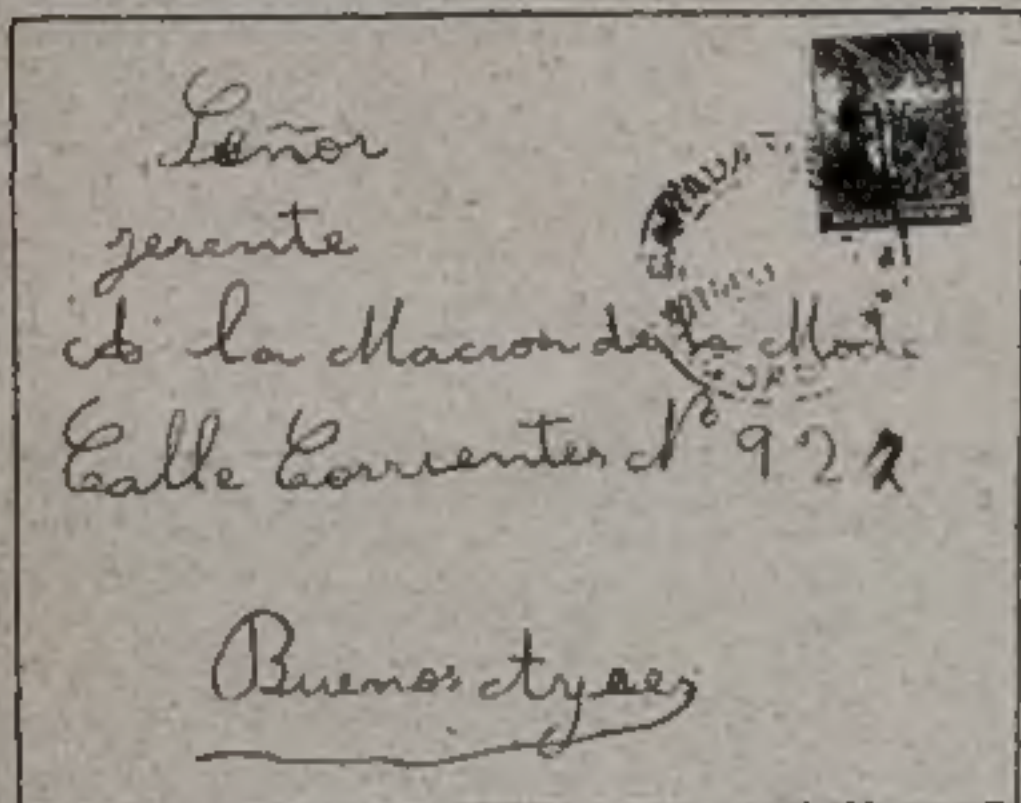 Señor
gerente
A la Macion de la
Calle Corrientes Nº 922
Buenos Ayres